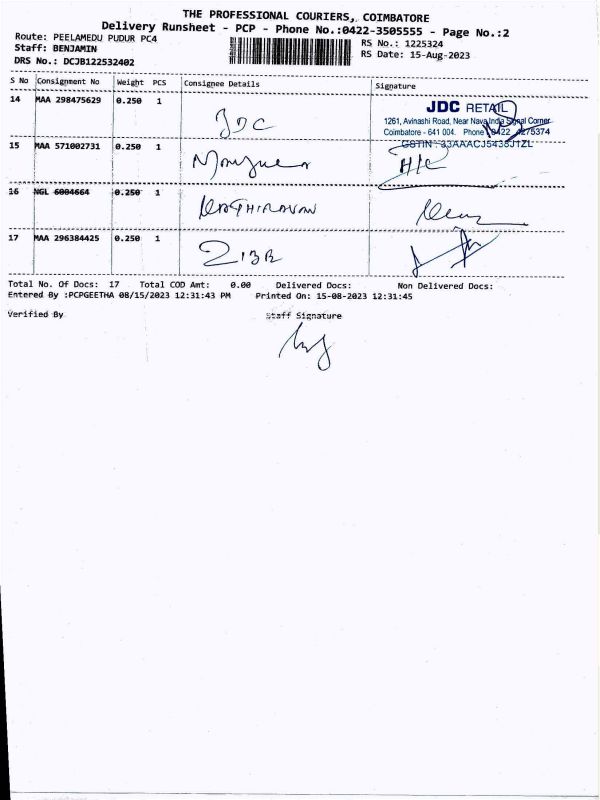 THE PROFESSIONAL COURIERS, COIMBATORE
Delivery Runsheet - PCP - Phone No.:0422-3505555 - Page No.:2
Route: PEELAMEDU PUDUR PC4
RS No.: 1225324
Staff: BENJAMIN
RS Date: 15-Aug-2023
DRS No.: DCJB122532402
S No Consignment No Weight PCS Consignee Details Signature
14 MAA 298475629 0.250 1 JDC
JDC RETAIL
1261, Avinashi Road, Near Nava India Signal Corner
Coimbatore - 641 004. Phone 0422 4275374
GSTIN : 33AAACJ5435J1ZL
15 MAA 571002731 0.250 1 H/C
16 NGL 6004664 0.250 1 KATHIRAVAN
17 MAA 296384425 0.250 1
Total No. Of Docs: 17 Total COD Amt: 0.00 Delivered Docs: Non Delivered Docs:
Entered By :PCPGEETHA 08/15/2023 12:31:43 PM Printed On: 15-08-2023 12:31:45
Verified By Staff Signature